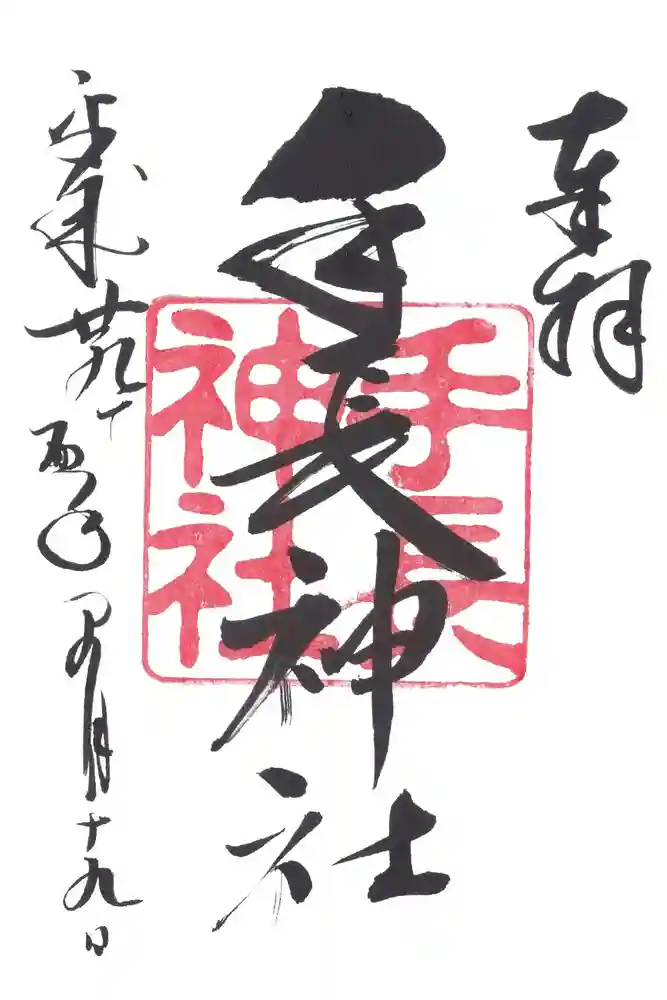 奉拝
手長神社
手長
神社
平成廿九丁酉年 月十九日